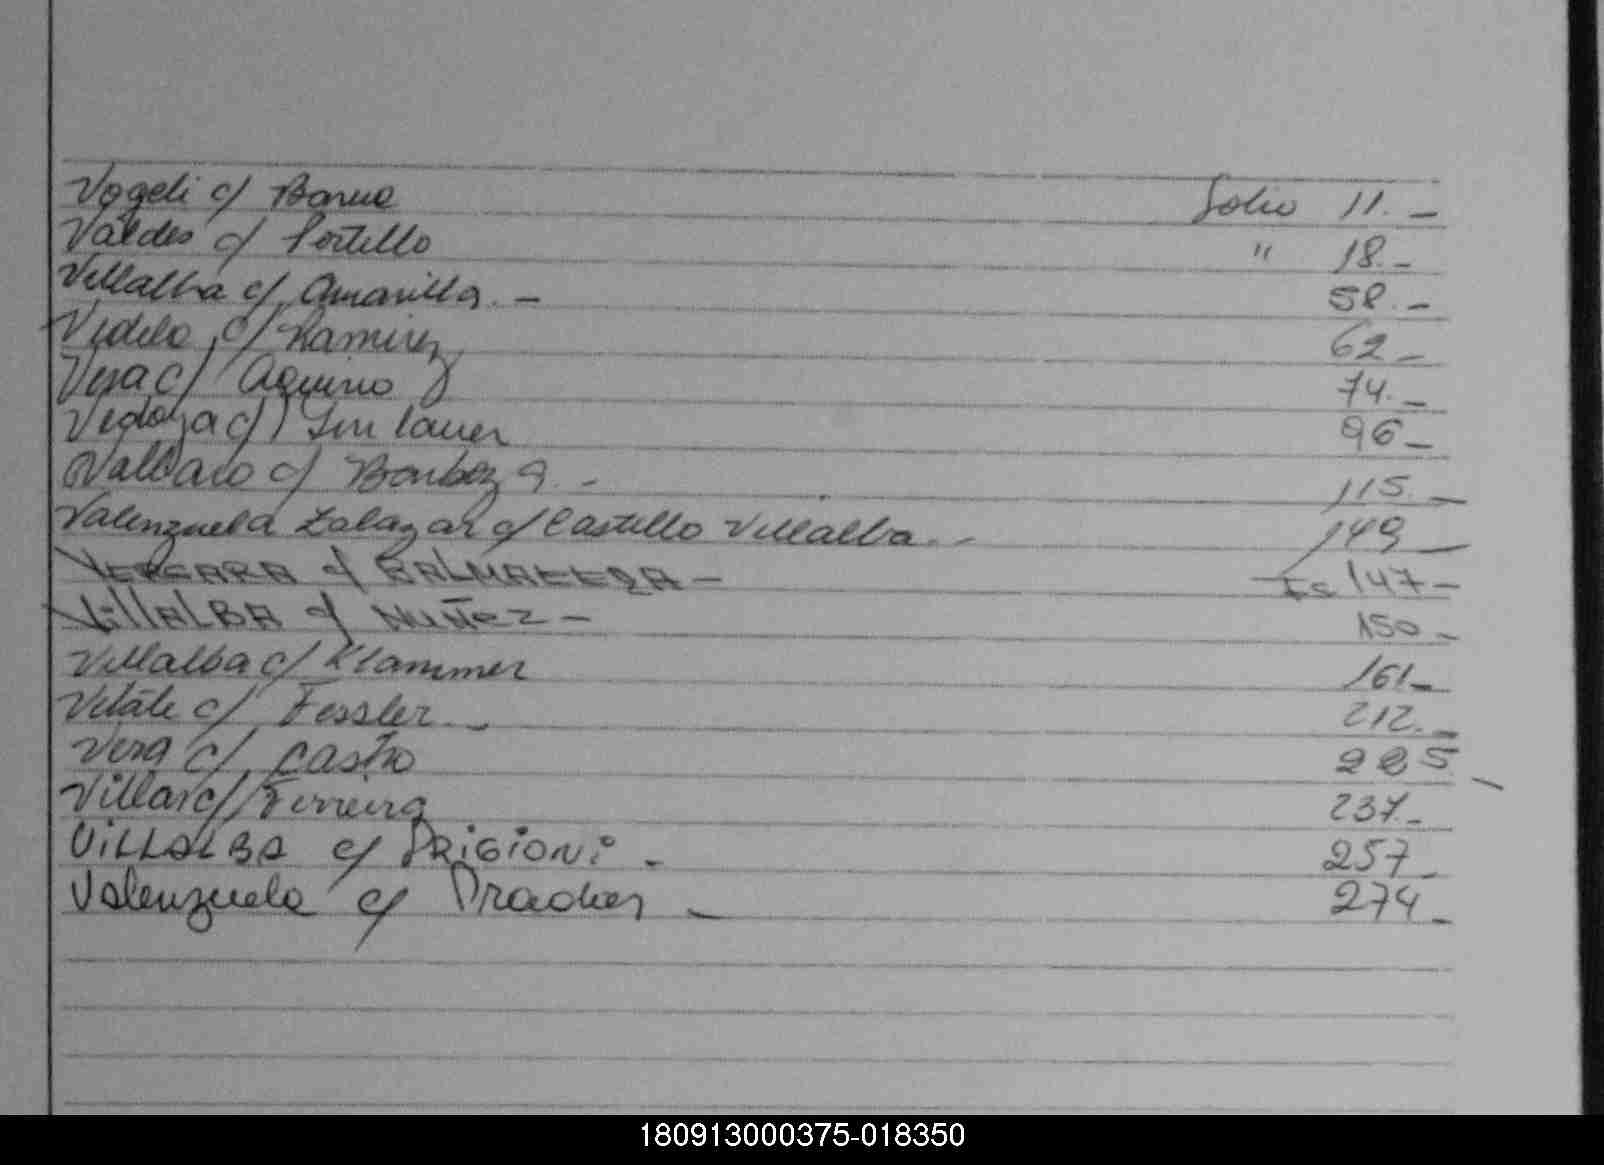 Vogeli c/ Folio 11.-
Valdes c/ Portillo " 18.-
Villalba c/ Amarilla.- 58.-
Videla c/ Ramirez 62-
Vera c/ Aquino 74.-
c/ 96-
c/ Barboza.- 115.-
Valenzuela Zalazar c/ Castillo Villalba.- 149-
VERGARA c/ BALMACEDA- Fo 147-
VillALBA c/ NUÑEZ- 150-
Villalba c/ Klammer 161-
Vitale c/ Fessler.- 212.-
Vera c/ Castro 225-
Villar c/ Ferreira 237.-
ViLLALBA c/ PRiGiONi- 257-
Valenzuela c/ - 274-
180913000375-018350